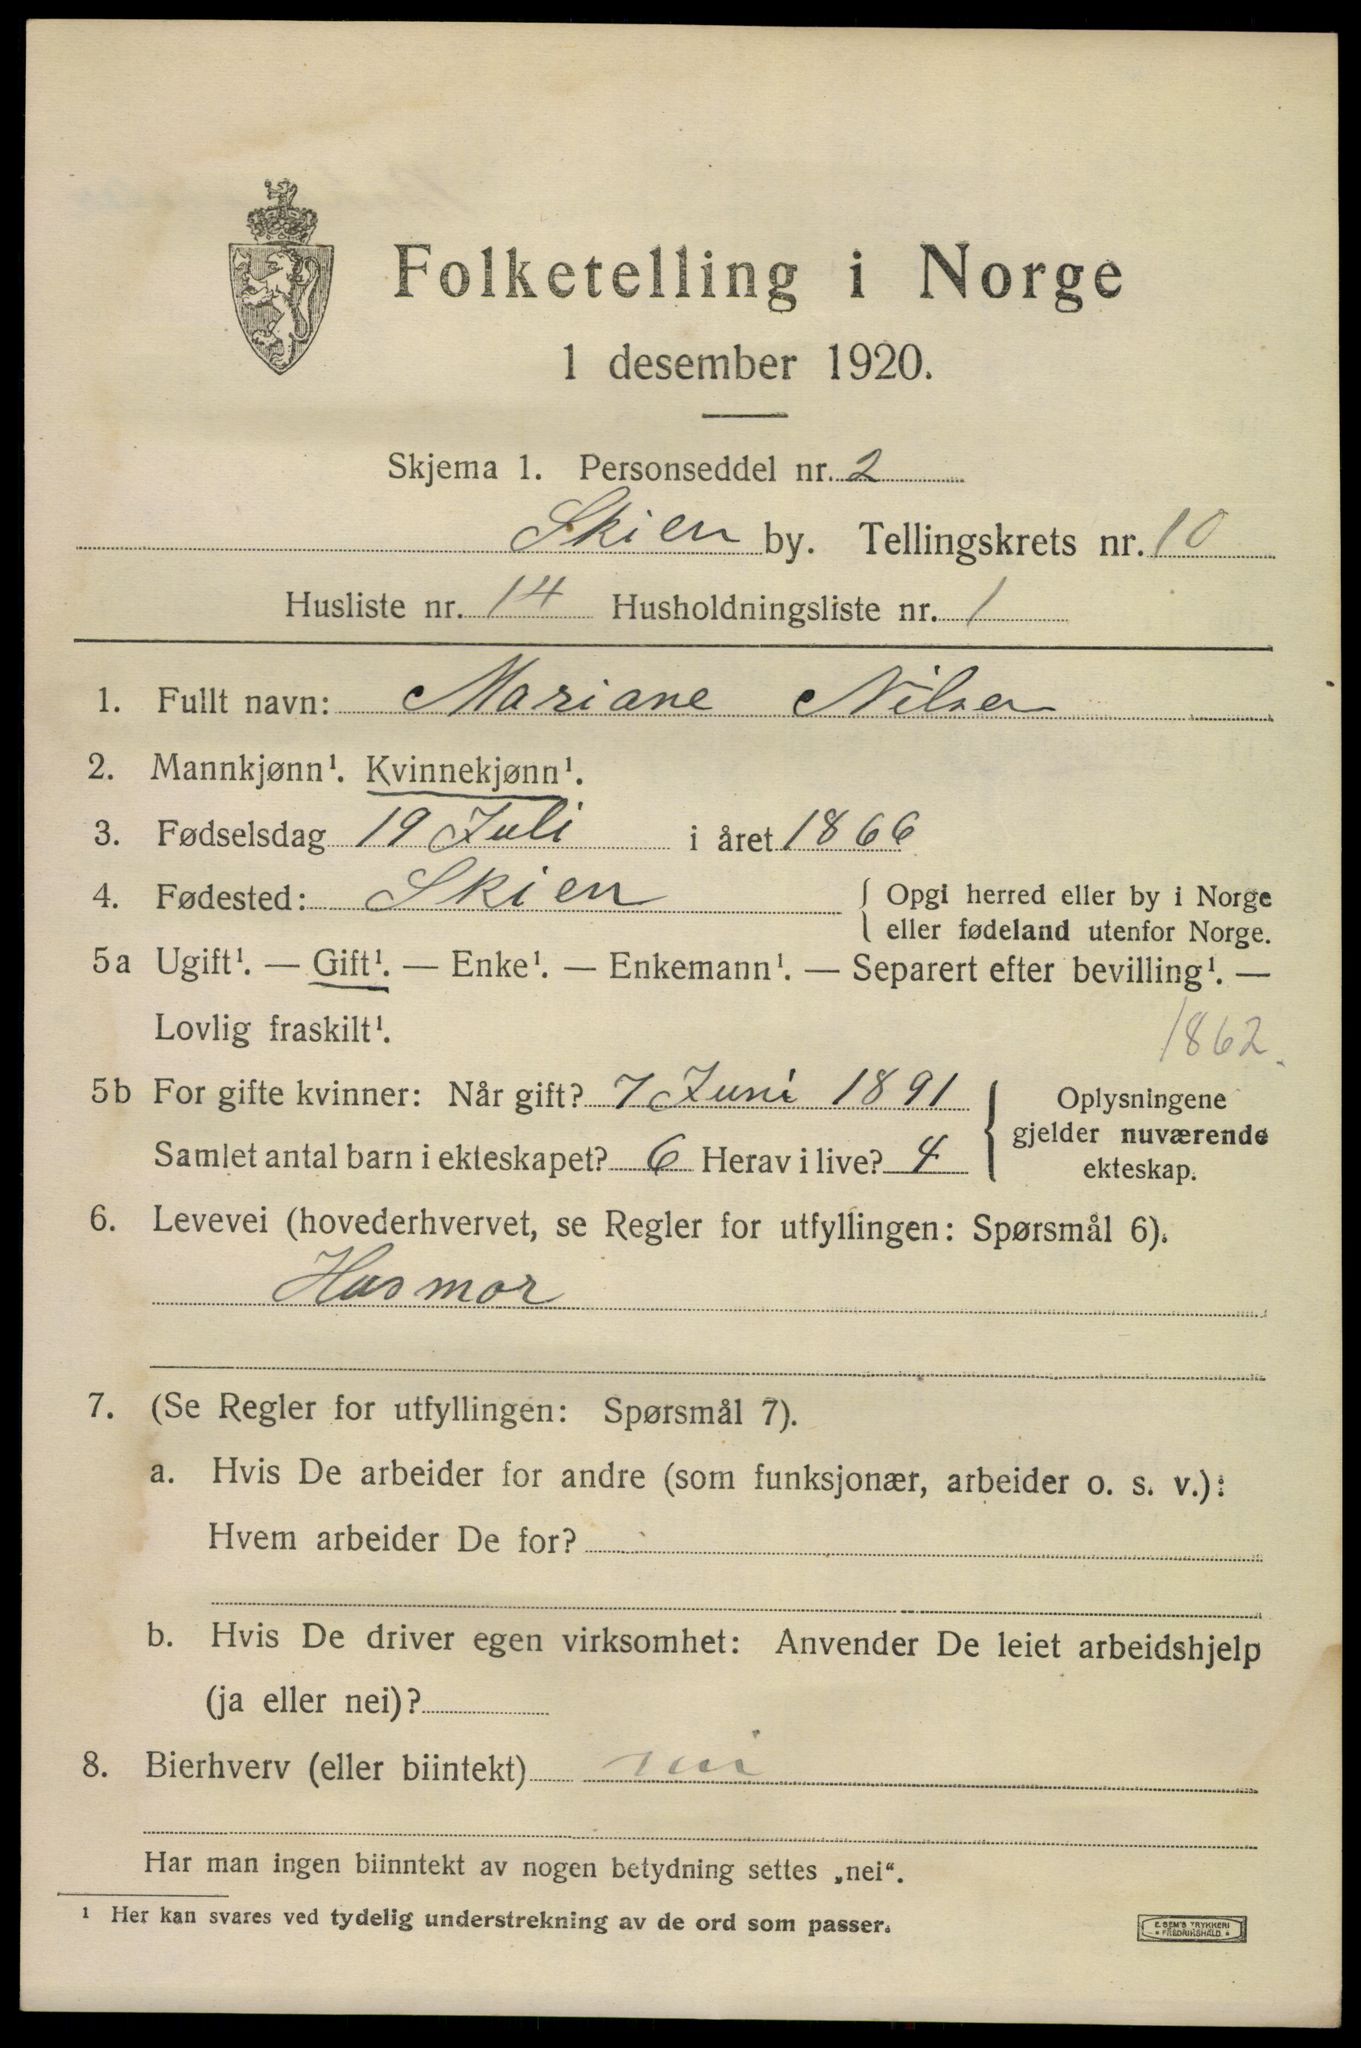 Folketelling i Norge
1 desember 1920.
Skjema 1. Personseddel nr. 2
Skien by. Tellingskrets nr. 10
Husliste nr. 14 Husholdningsliste nr. 1
1. Fullt navn: Mariane Nilsen
2. Mannkjønn¹. Kvinnekjønn¹.
3. Fødselsdag 19 Juli i året 1866
4. Fødested: Skien { Opgi herred eller by i Norge
eller fødeland utenfor Norge.
5a Ugift¹. — Gift¹. — Enke¹. — Enkemann¹. — Separert efter bevilling¹. —
Lovlig fraskilt¹.
1862.
5b For gifte kvinner: Når gift? 7 Juni 1891
Samlet antal barn i ekteskapet? 6 Herav i live? 4
{ Oplysningene
gjelder nuværende
ekteskap.
6. Levevei (hovederhvervet, se Regler for utfyllingen: Spørsmål 6).
Husmor
7. (Se Regler for utfyllingen: Spørsmål 7).
a. Hvis De arbeider for andre (som funksjonær, arbeider o. s. v.):
Hvem arbeider De for?
b. Hvis De driver egen virksomhet: Anvender De leiet arbeidshjelp
(ja eller nei)?
8. Bierhverv (eller biintekt) nei
Har man ingen biinntekt av nogen betydning settes „nei“.
¹ Her kan svares ved tydelig understrekning av de ord som passer.
E. SEM'S TRYKKERI
FREDRIKSHALD